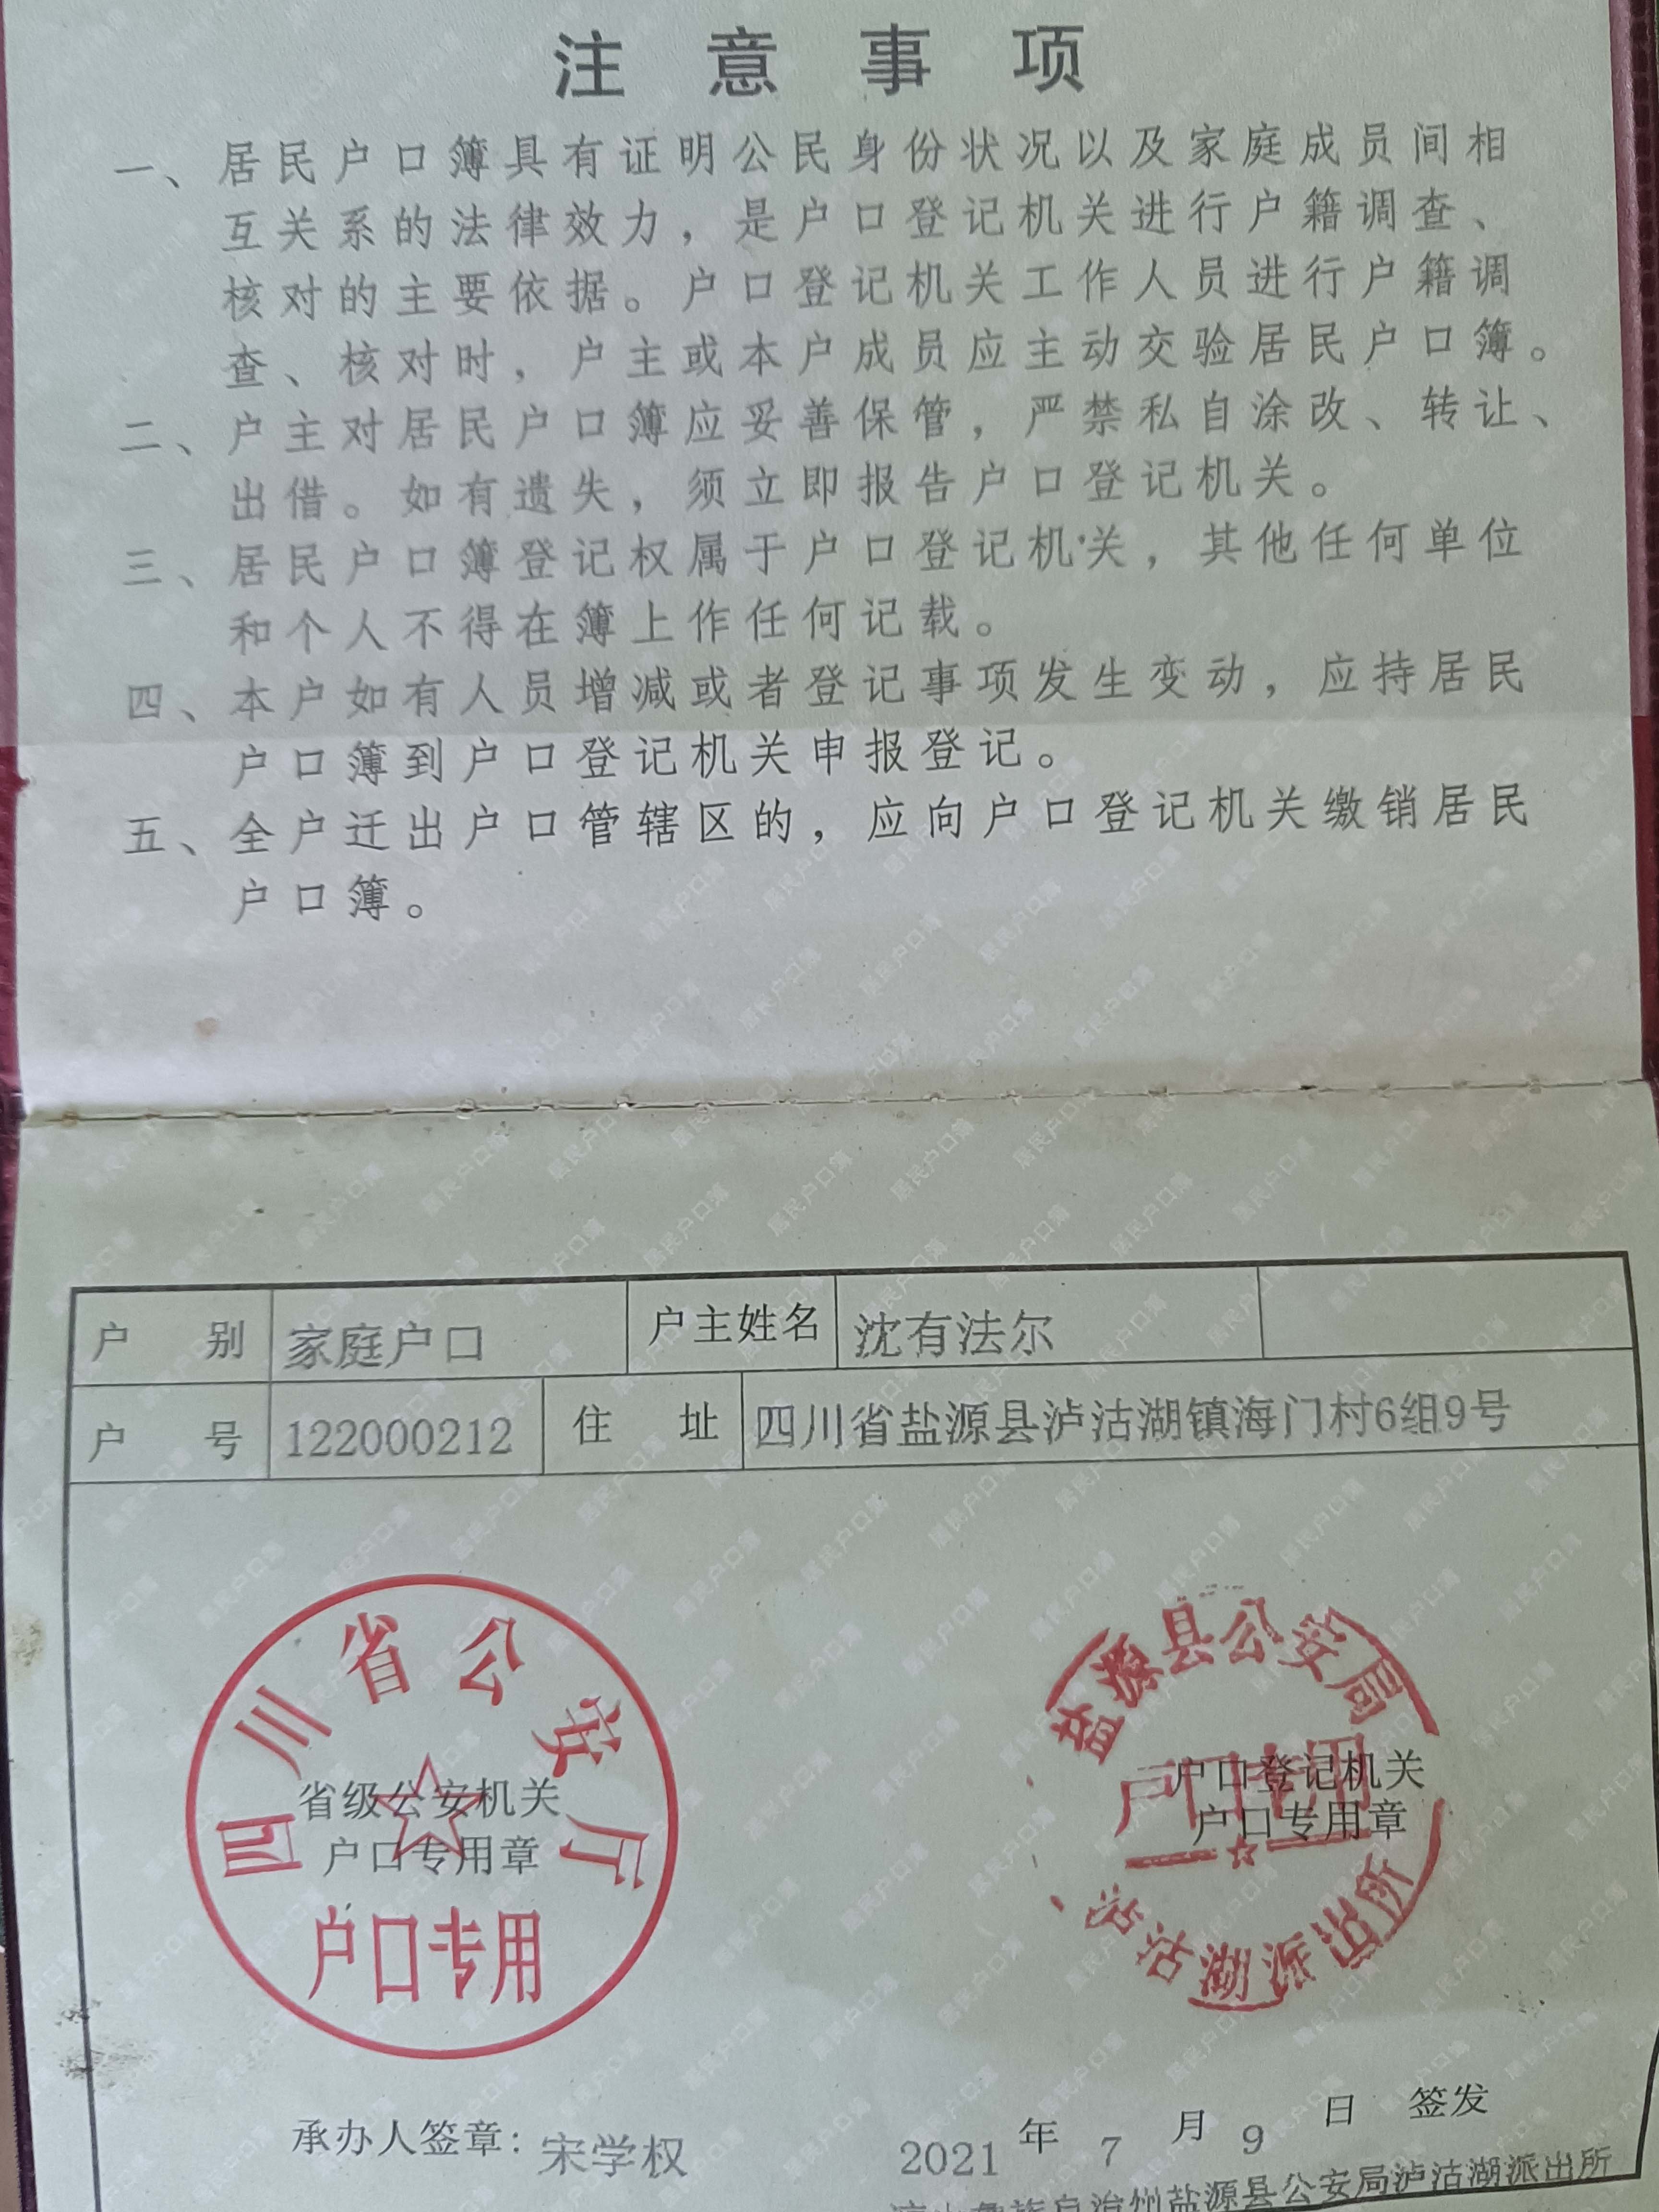 注意事项
一、居民户口簿具有证明公民身份状况以及家庭成员间相
互关系的法律效力，是户口登记机关进行户籍调查、
核对的主要依据。户口登记机关工作人员进行户籍调
查、核对时，户主或本户成员应主动交验居民户口簿。
二、户主对居民户口簿应妥善保管，严禁私自涂改、转让、
出借。如有遗失，须立即报告户口登记机关。
三、居民户口簿登记权属于户口登记机关，其他任何单位
和个人不得在簿上作任何记载。
四、本户如有人员增减或者登记事项发生变动，应持居民
户口簿到户口登记机关申报登记。
五、全户迁出户口管辖区的，应向户口登记机关缴销居民
户口簿。
户别 家庭户口 户主姓名 沈有法尔
户号 122000212 住址 四川省盐源县泸沽湖镇海门村6组9号
四川省公安厅
省级公安机关
户口专用章
户口专用
盐源县公安局
户口专用
户口登记机关
户口专用章
泸沽湖派出所
承办人签章：宋学权 2021年7月9日签发
凉山彝族自治州盐源县公安局泸沽湖派出所